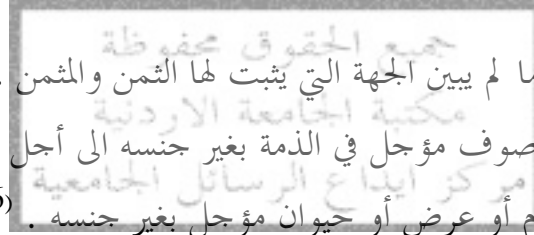 جميع الحقوق محفوظة
ما لم يبين الجهة التي يثبت لها الثمن والمثمن .
مكتبة الجامعة الاردنية
صوف مؤجل في الذمة بغير جنسه الى أجل
مركز ايداع الرسائل الجامعية
أو عرض أو حيوان مؤجل بغير جنسه .